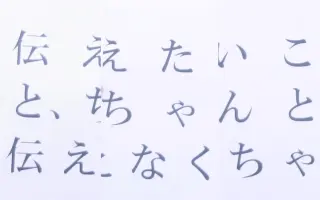 伝えたいこ
と、ちゃんと
伝えなくちゃ